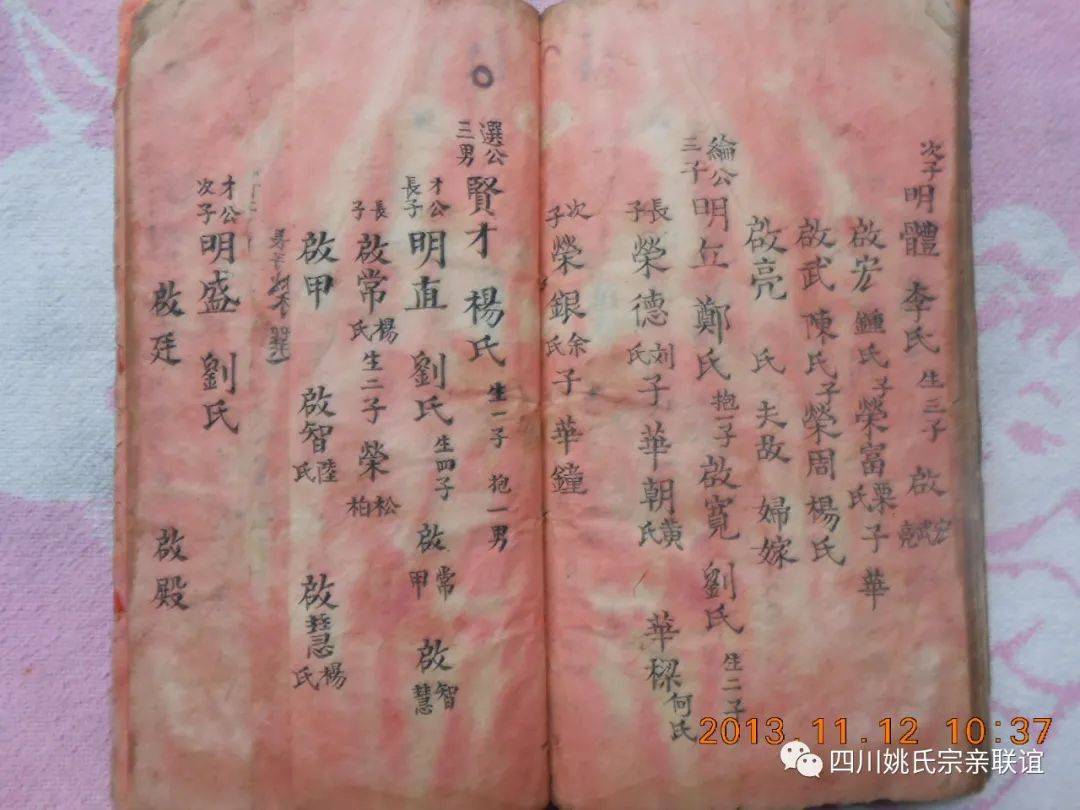 次子 明體 李氏 生三子 啟 宏 武 亮
啟宏 鍾氏 子榮富 栗氏 子華
啟武 陳氏 子榮周 楊氏
啟亮 氏 夫故 婦嫁
綸公三子 明丘 鄭氏 抱一子 啟寬 劉氏 生二子
長子 榮德 刘氏 子華朝 黄氏 華樑 何氏
次子 榮銀 余氏 子華鐘
選公三男 賢才 楊氏 生一子 抱一男
才公長子 明直 劉氏 生四子 啟常 甲 啟智 慧
長子 啟常 楊氏 生二子 榮松 柏
啟甲 啟智 陸氏 啟慧 楊氏
才公次子 明盛 劉氏
啟廷 啟殿
2013.11.12 10:37
四川姚氏宗亲联谊